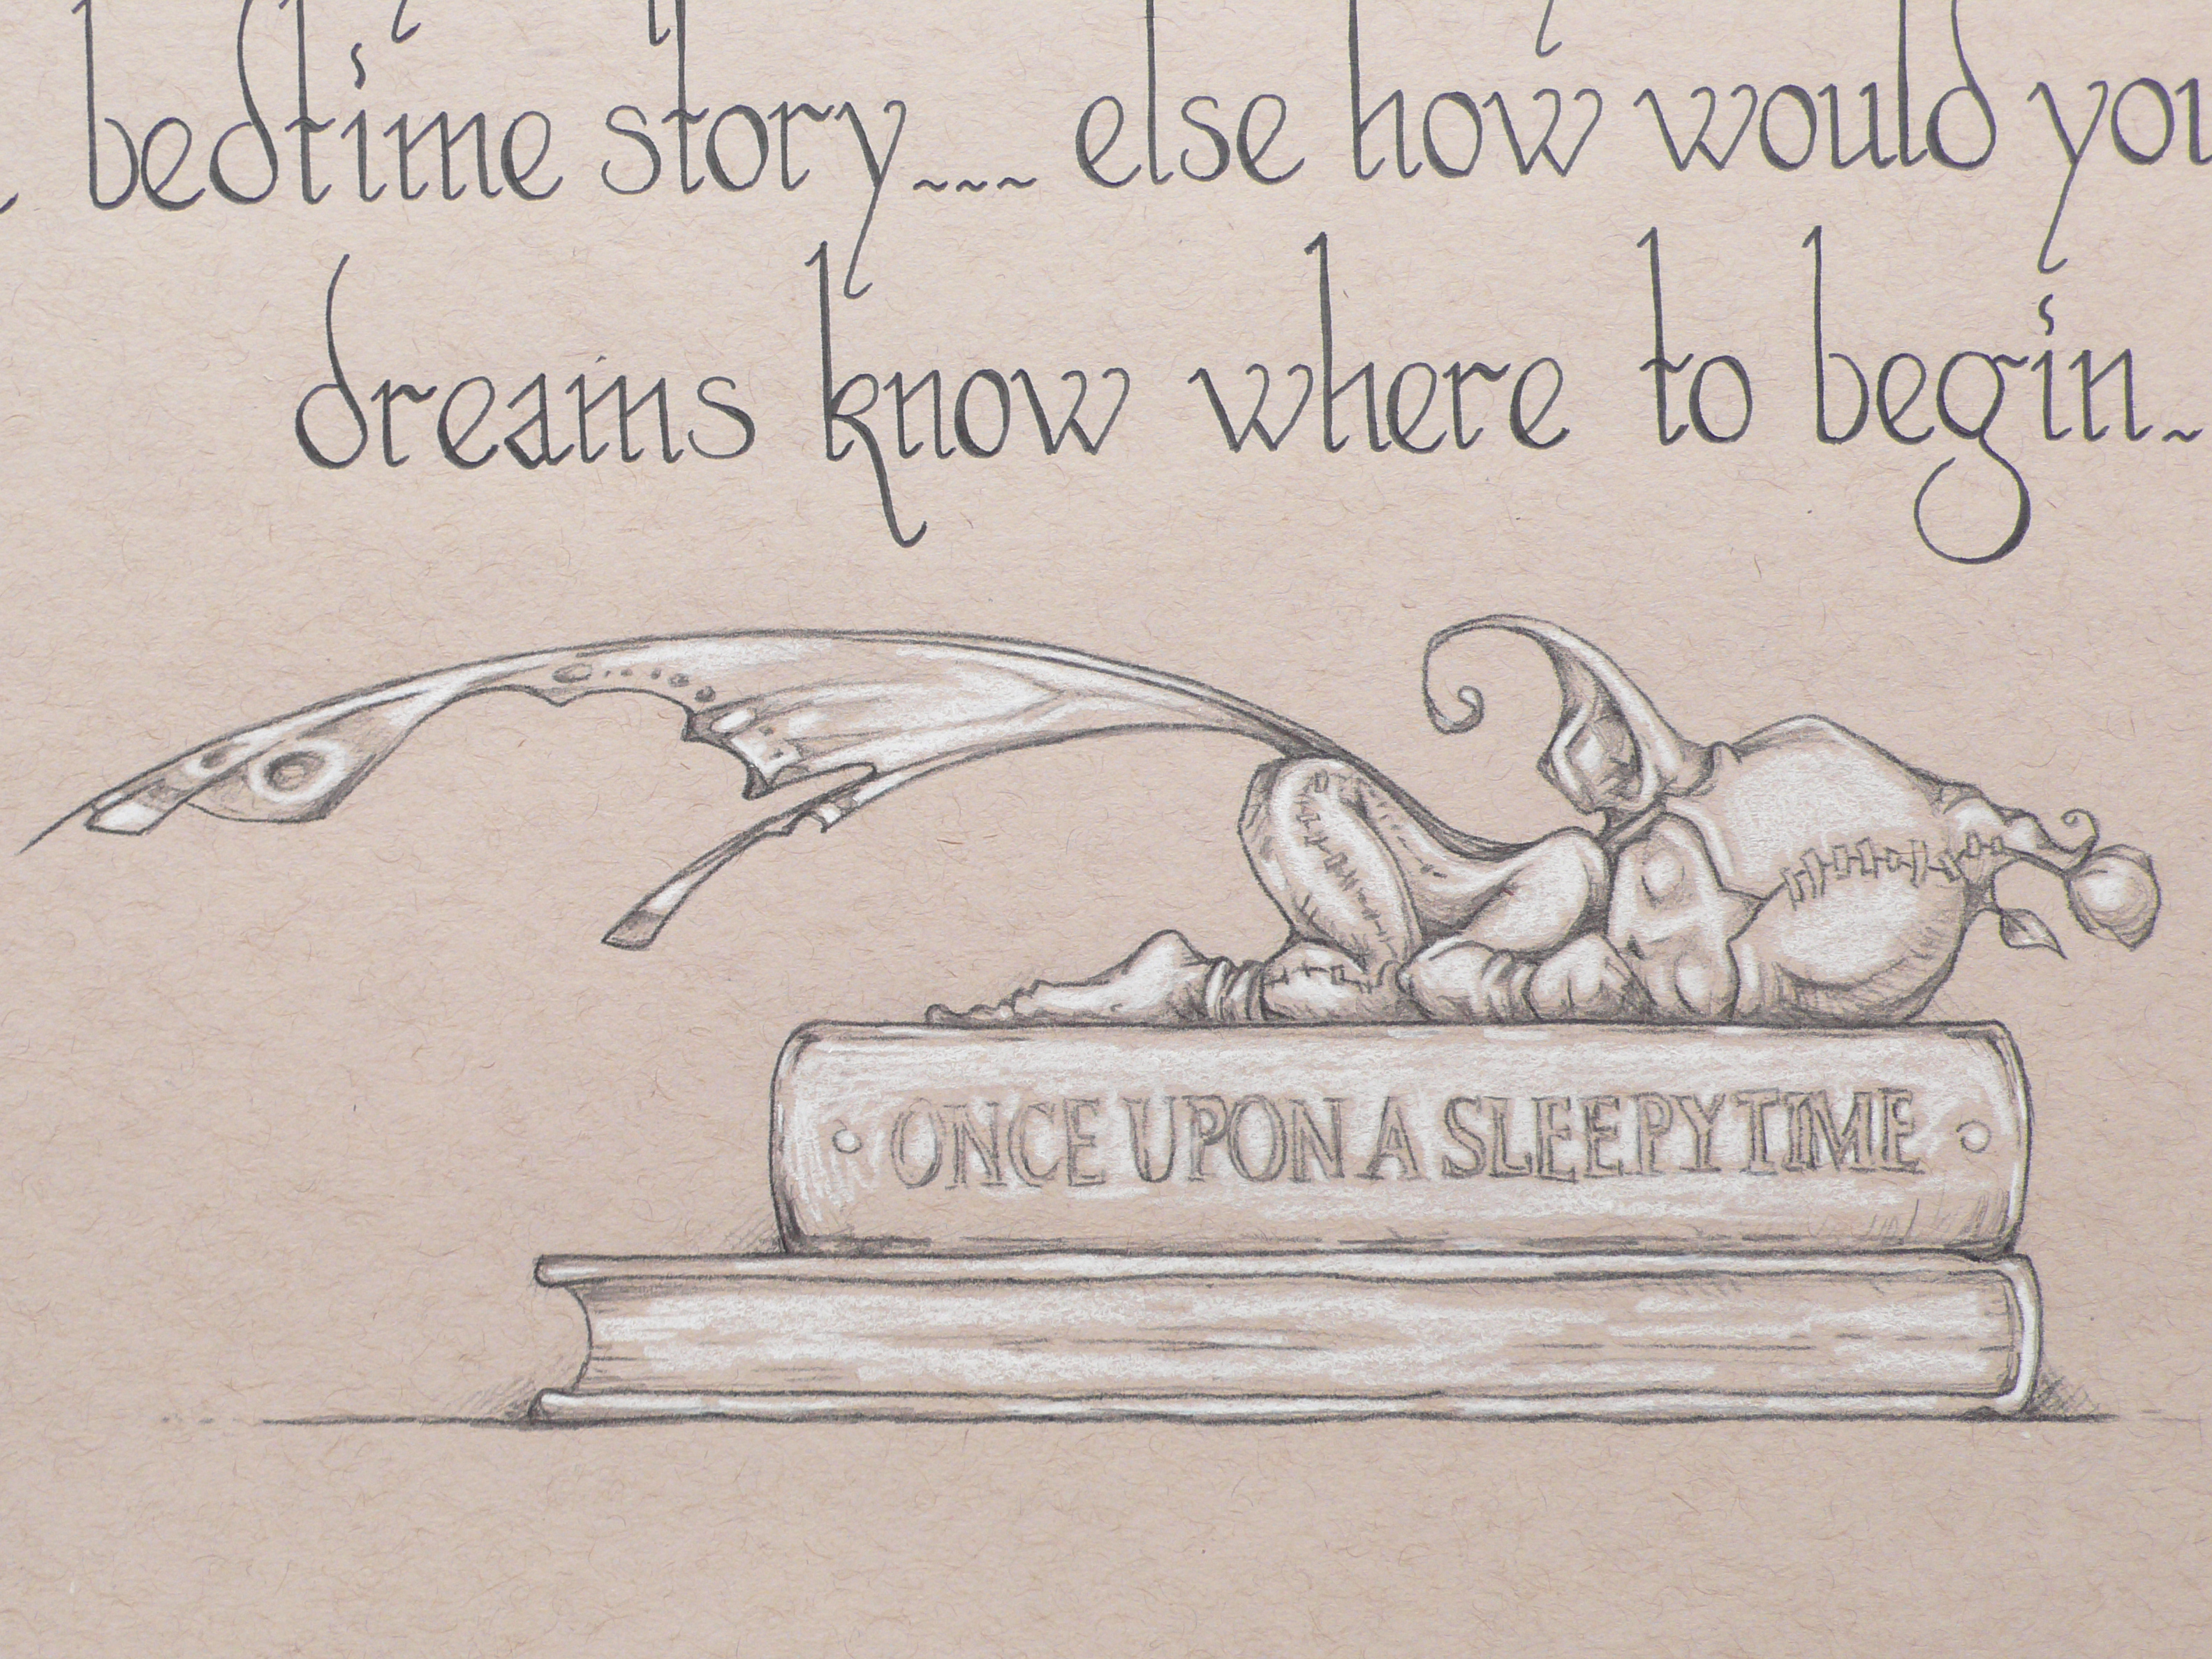 bedtime story.... else how would you
dreams know where to begin.
ONCE UPON A SLEEPYTIME